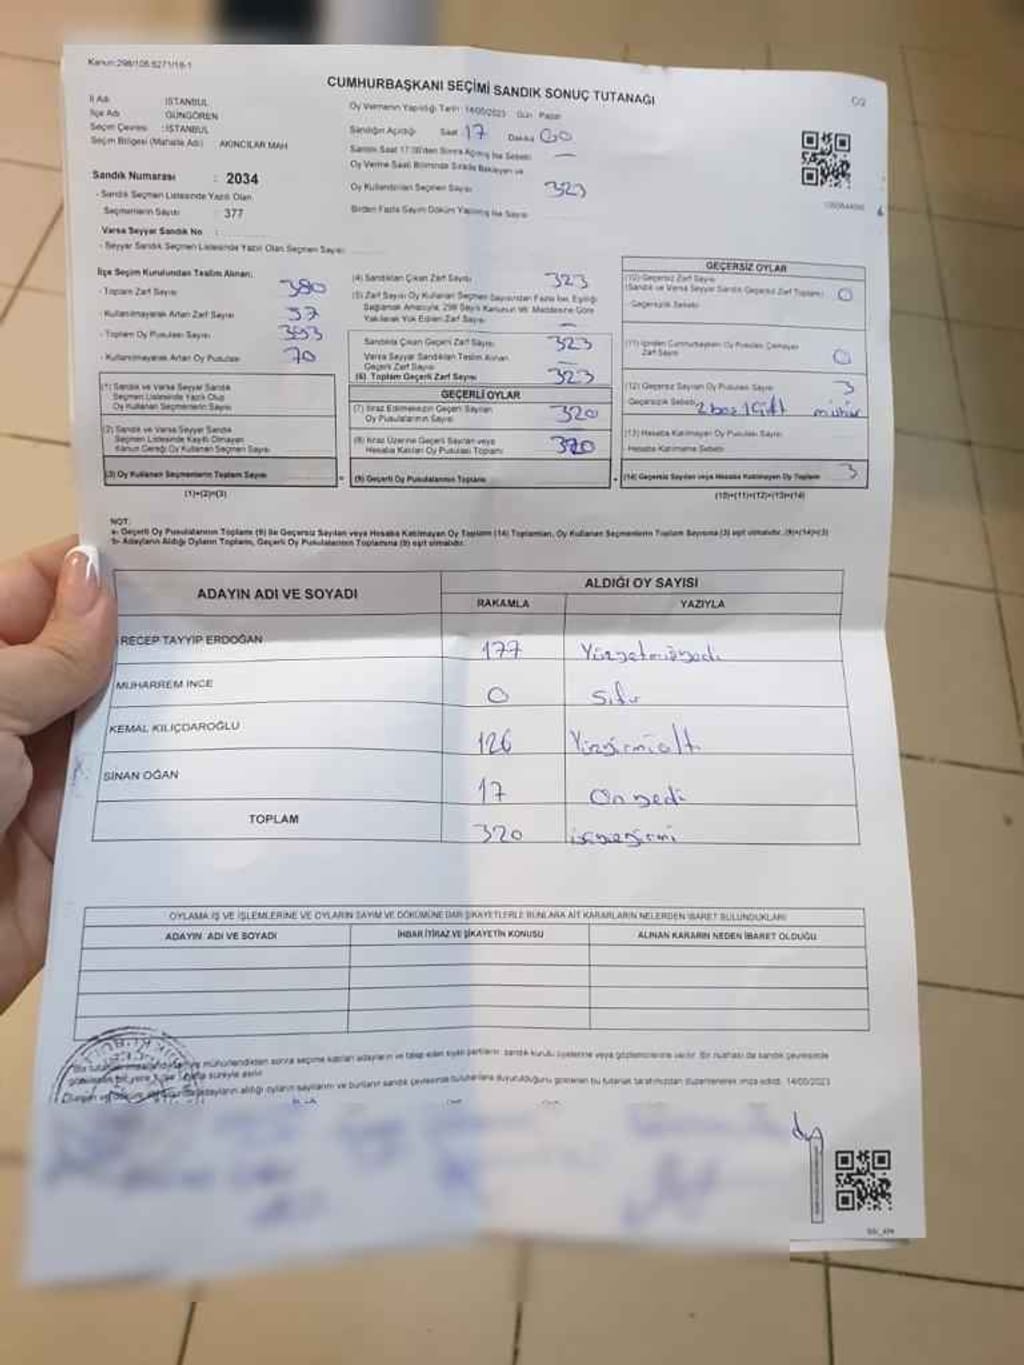 Kanun:298/105.6271/18-1
CUMHURBAŞKANI SEÇİMİ SANDIK SONUÇ TUTANAĞI
İl Adı : İSTANBUL
İlçe Adı : GÜNGÖREN
Seçim Çevresi : İSTANBUL
Seçim Bölgesi (Mahalle Adı) : AKINCILAR MAH
Sandık Numarası : 2034
- Sandık Seçmen Listesinde Yazılı Olan
Seçmenlerin Sayısı : 377
Varsa Seyyar Sandık No :
- Seyyar Sandık Seçmen Listesinde Yazılı Olan Seçmen Sayısı
Oy Vermenin Yapıldığı Tarih: 14/05/2023 Gün: Pazar
Sandığın Açıldığı Saat 17 Dakika 00
Sandık Saat 17:00'den Sonra Açılmış İse Sebebi: —
Oy Verme Saati Bitiminde Sırada Bekleyen ve
Oy Kullandırılan Seçmen Sayısı 323
Birden Fazla Sayım Döküm Yapılmış İse Sayısı
İlçe Seçim Kurulundan Teslim Alınan:
- Toplam Zarf Sayısı 380
- Kullanılmayarak Artan Zarf Sayısı 57
- Toplam Oy Pusulası Sayısı 393
- Kullanılmayarak Artan Oy Pusulası 70
(1) Sandık ve Varsa Seyyar Sandık
Seçmen Listesinde Yazılı Olup
Oy Kullanan Seçmenlerin Sayısı
(2) Sandık ve Varsa Seyyar Sandık
Seçmen Listesinde Kayıtlı Olmayan
Kanun Gereği Oy Kullanan Seçmen Sayısı
(3) Oy Kullanan Seçmenlerin Toplam Sayısı =
(1)+(2)=(3)
(4) Sandıktan Çıkan Zarf Sayısı 323
(5) Zarf Sayısı Oy Kullanan Seçmen Sayısından Fazla İse, Eşitliği
Sağlamak Amacıyla, 298 Sayılı Kanunun 98. Maddesine Göre
Yakılarak Yok Edilen Zarf Sayısı —
Sandıkta Çıkan Geçerli Zarf Sayısı 323
Varsa Seyyar Sandıktan Teslim Alınan
Geçerli Zarf Sayısı —
(6) Toplam Geçerli Zarf Sayısı 323
GEÇERLİ OYLAR
(7) İtiraz Edilmeksizin Geçerli Sayılan
Oy Pusulalarının Sayısı 320
(8) İtiraz Üzerine Geçerli Sayılan veya
Hesaba Katılan Oy Pusulası Toplamı 320
(9) Geçerli Oy Pusulalarının Toplamı +
GEÇERSİZ OYLAR
(10) Geçersiz Zarf Sayısı
(Sandık ve Varsa Seyyar Sandık Geçersiz Zarf Toplamı) 0
Geçersizlik Sebebi:
(11) İçinden Cumhurbaşkanı Oy Pusulası Çıkmayan
Zarf Sayısı 0
(12) Geçersiz Sayılan Oy Pusulası Sayısı 3
Geçersizlik Sebebi: 2 boş 1 çift mühür
(13) Hesaba Katılmayan Oy Pusulası Sayısı
Hesaba Katılmama Sebebi:
(14) Geçersiz Sayılan veya Hesaba Katılmayan Oy Toplamı 3
(10)+(11)+(12)+(13)=(14)
NOT:
a- Geçerli Oy Pusulalarının Toplamı (9) ile Geçersiz Sayılan veya Hesaba Katılmayan Oy Toplamı (14) Toplamları, Oy Kullanan Seçmenlerin Toplam Sayısına (3) eşit olmalıdır. (9)+(14)=(3)
b- Adayların Aldığı Oyların Toplamı, Geçerli Oy Pusulalarının Toplamına (9) eşit olmalıdır.
ADAYIN ADI VE SOYADI
ALDIĞI OY SAYISI
RAKAMLA YAZIYLA
RECEP TAYYİP ERDOĞAN 177 Yüzyetmişyedi
MUHARREM İNCE 0 Sıfır
KEMAL KILIÇDAROĞLU 126 Yüzyirmialtı
SİNAN OĞAN 17 Onyedi
TOPLAM 320 üçyüzyirmi
OYLAMA İŞ VE İŞLEMLERİNE VE OYLARIN SAYIM VE DÖKÜMÜNE DAİR ŞİKAYETLERLE BUNLARA AİT KARARLARIN NELERDEN İBARET BULUNDUKLARI
ADAYIN ADI VE SOYADI İHBAR İTİRAZ VE ŞİKAYETİN KONUSU ALINAN KARARIN NEDEN İBARET OLDUĞU
mühürlendikten sonra seçime katılan adayların ve talep eden siyasi partilerin sandık kurulu üyelerine veya gözlemcilerine verilir. Bir nüshası da sandık çevresinde
süreyle asılır.
adayların aldığı oyların sayılarını ve bunların sandık çevresinde bulunanlara duyurulduğunu gösteren bu tutanak tarafımızdan düzenlenerek imza edildi. 14/05/2023